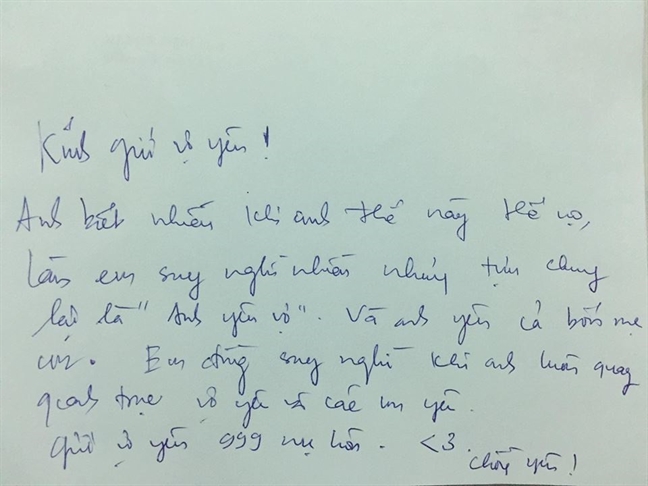 Kính gửi vợ yêu!
Anh biết nhiều khi anh thế này thế nọ,
làm em suy nghĩ nhiều nhưng tựu chung
lại là "Anh yêu vợ". Và anh yêu cả bốn mẹ
con. Em đừng suy nghĩ khi anh luôn quay
quanh trục vợ yêu và các con yêu.
Gửi vợ yêu 999 nụ hôn. <3
Chồng yêu!